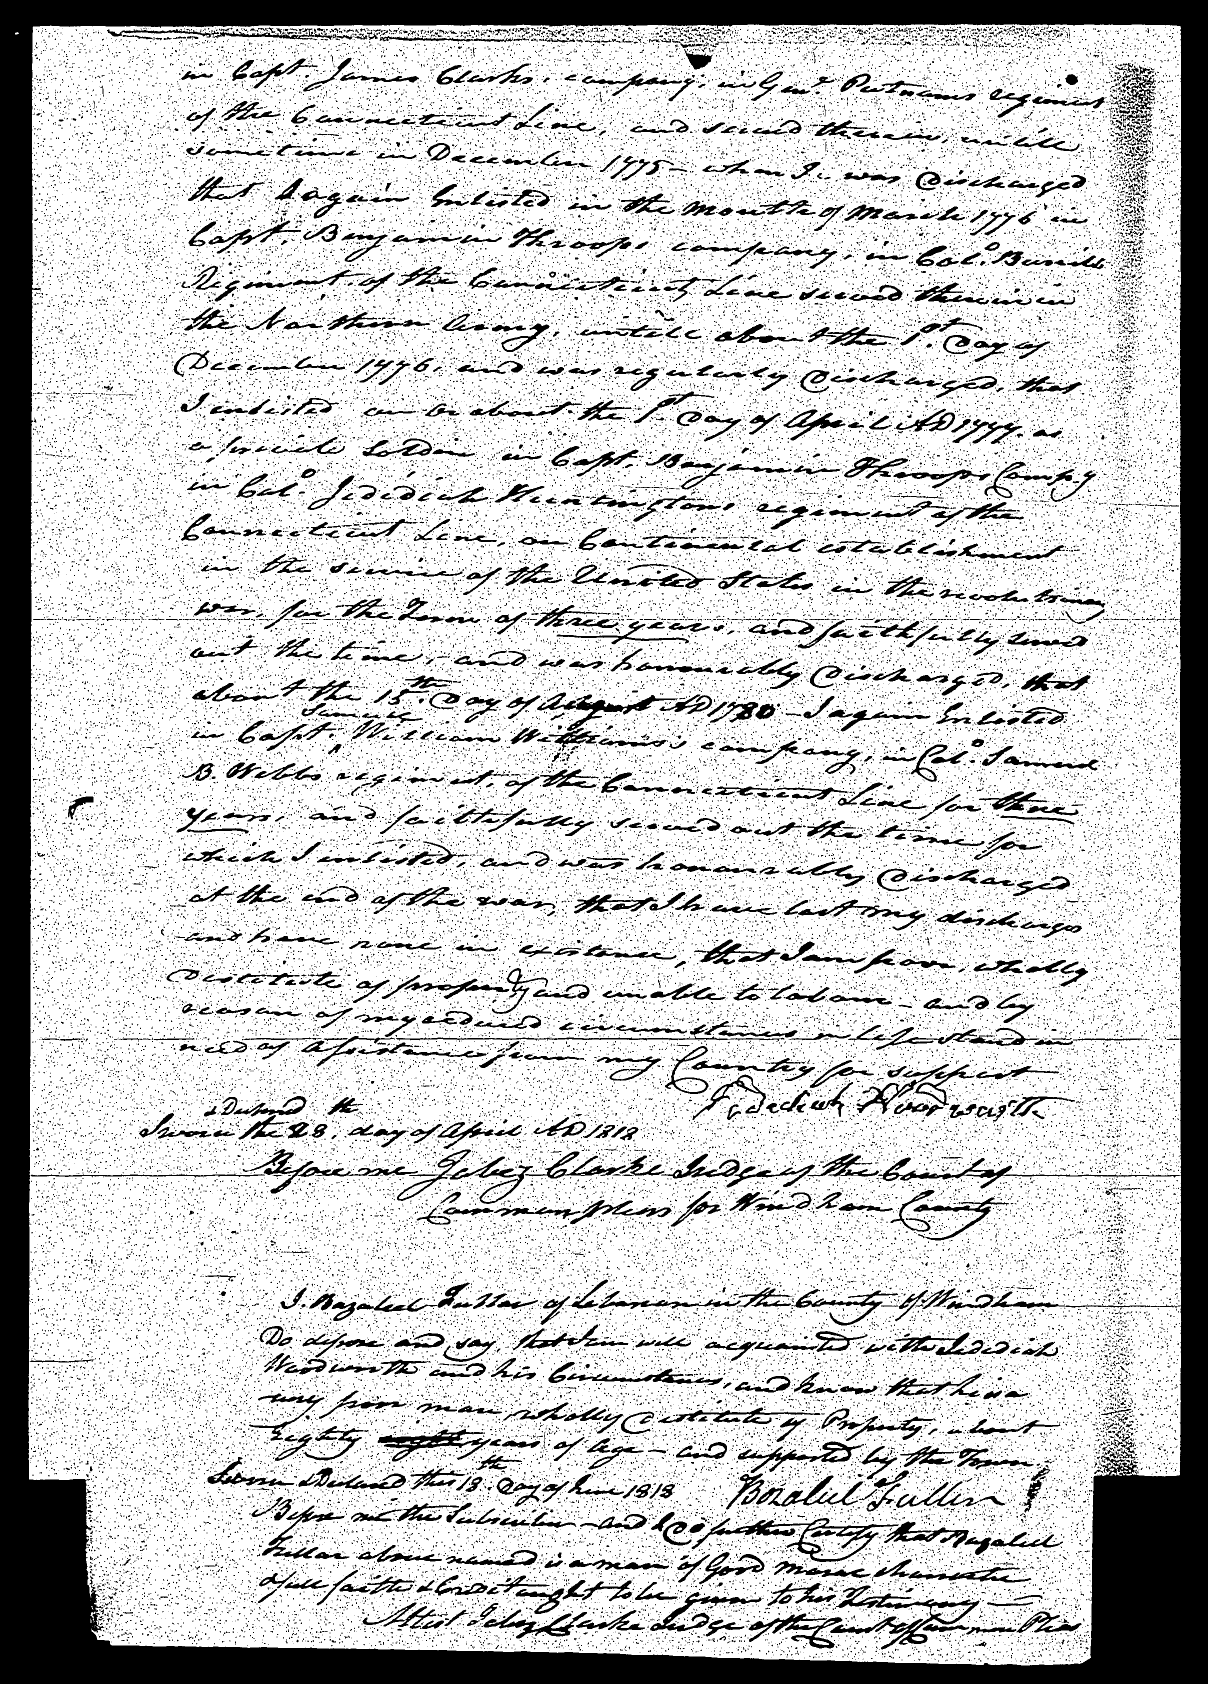 in Capt. James Clarks, company, in Genl. Putnams regiment
of the Connecticut Line, and served therein, untill
sometime in December 1775 – when I was Discharged
that I again Enlisted in the month of March 1776 in
Capt. Benjamin Throops company, in Colo.
Regiment of the Connecticut Line served therein in
the Northern Army, untill about the 1st. Day of
December 1776, and was regularly Discharged, that
I inlisted on or about the 1st. Day of April AD 1777. as
a private Soldier in Capt. Benjamin Throops Compy
in Colo. Jedidiah Huntingtons regiment of the
Connecticut Line, on Continental establishment
in the service of the United States in the revolutionary
war, for the Term of three years, and faithfully served
out the time, – and was honourably Discharged, that
about the 15th. Day of August AD 1780 – I again Enlisted
in Capt. Samuel William Williams's company, in Colo. Samuel
B. Webbs regiment, of the Connecticut Line for three
years, and faithfully served out the time for
which I inlisted, and was honourably Discharged
at the end of the war, that I have lost my discharges
and have none in existence, that I am poor, wholly
Destitute of property and unable to labour – and by
reason of my reduced circumstances in life stand in
need of assistance from my Country for support
Jedediah Woodworth
Sworn & Declared the 28th. day of April AD 1818
Before me Jabez Clarke Judge of the Court of
Common pleas for Windham County
I. Bazaleel Fuller of Lebanon in the County of Windham
Do depose and say that I am well acquainted with Jedidiah
Woodworth and his Circumstances, and know that he is a
very poor man, wholly destitute of Property, about
eighty years of age – and supported by the Town
Sworn & Declared this 18th. Day of June 1818 Bozaleel Fuller
Before me the Subscriber – and I Do further Certify that Bazaleel
Fuller above named is a man of Good moral character
& full faith & Credit ought to be given to his Testimony –
Attest Jabez Clarke Judge of the Court of Common Pleas